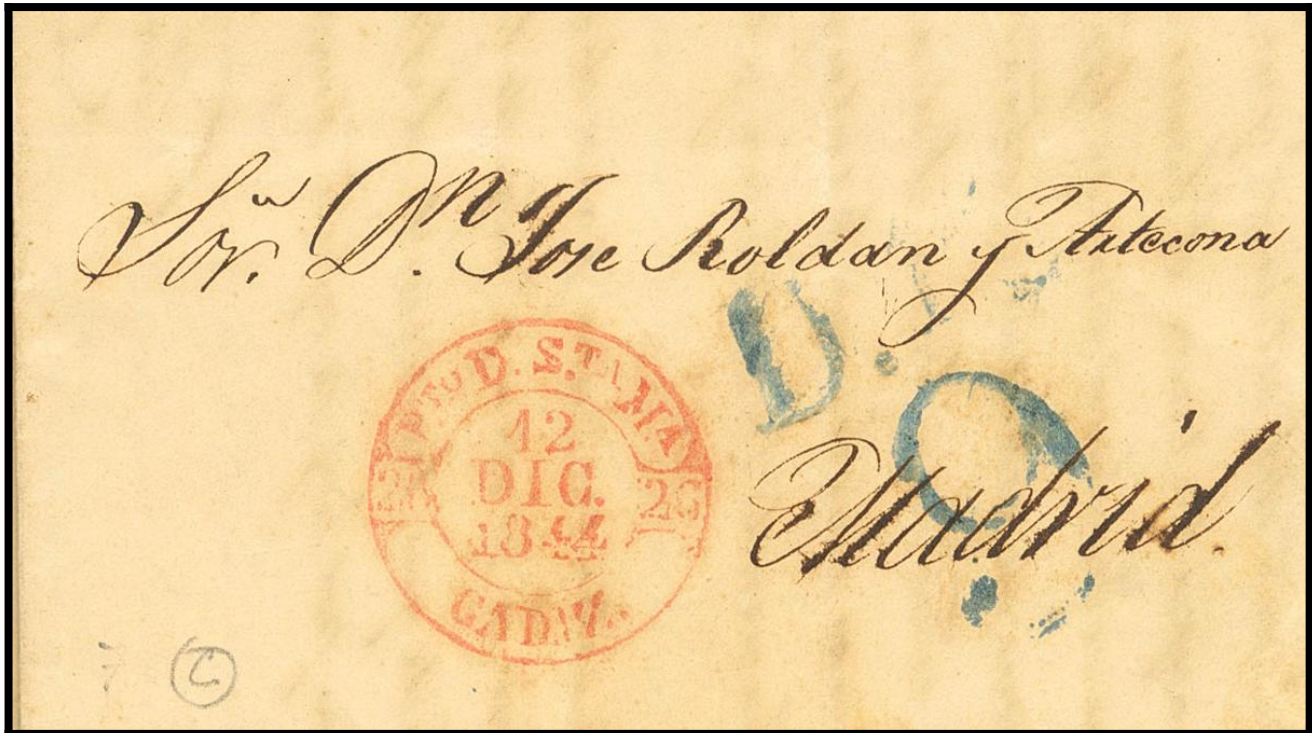 Sor. Dn. Jose Roldan y Artecona
D.
9
PTO D. STA MA
12
DIC.
1844
26
CADIZ.
Madrid.
C